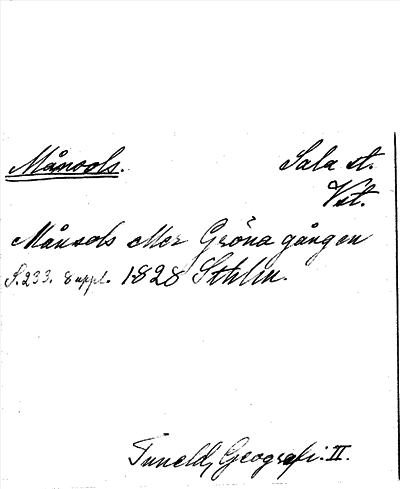 Månsols. Sala st.
Vst.
Månsols eller Gröna gången
S. 233. 8 uppl. 1828 Sthlm.
Tuneld, Geografi. II.